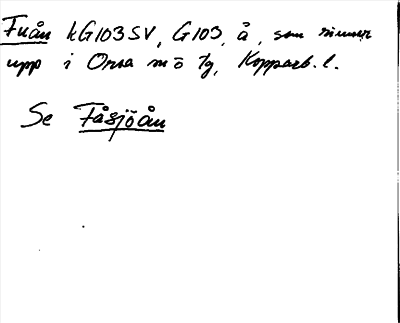 Fuån kG103SV, G103, å, som rinner
upp i Orsa m ö Tg, Kopparb. l.
Se Fågsjöån